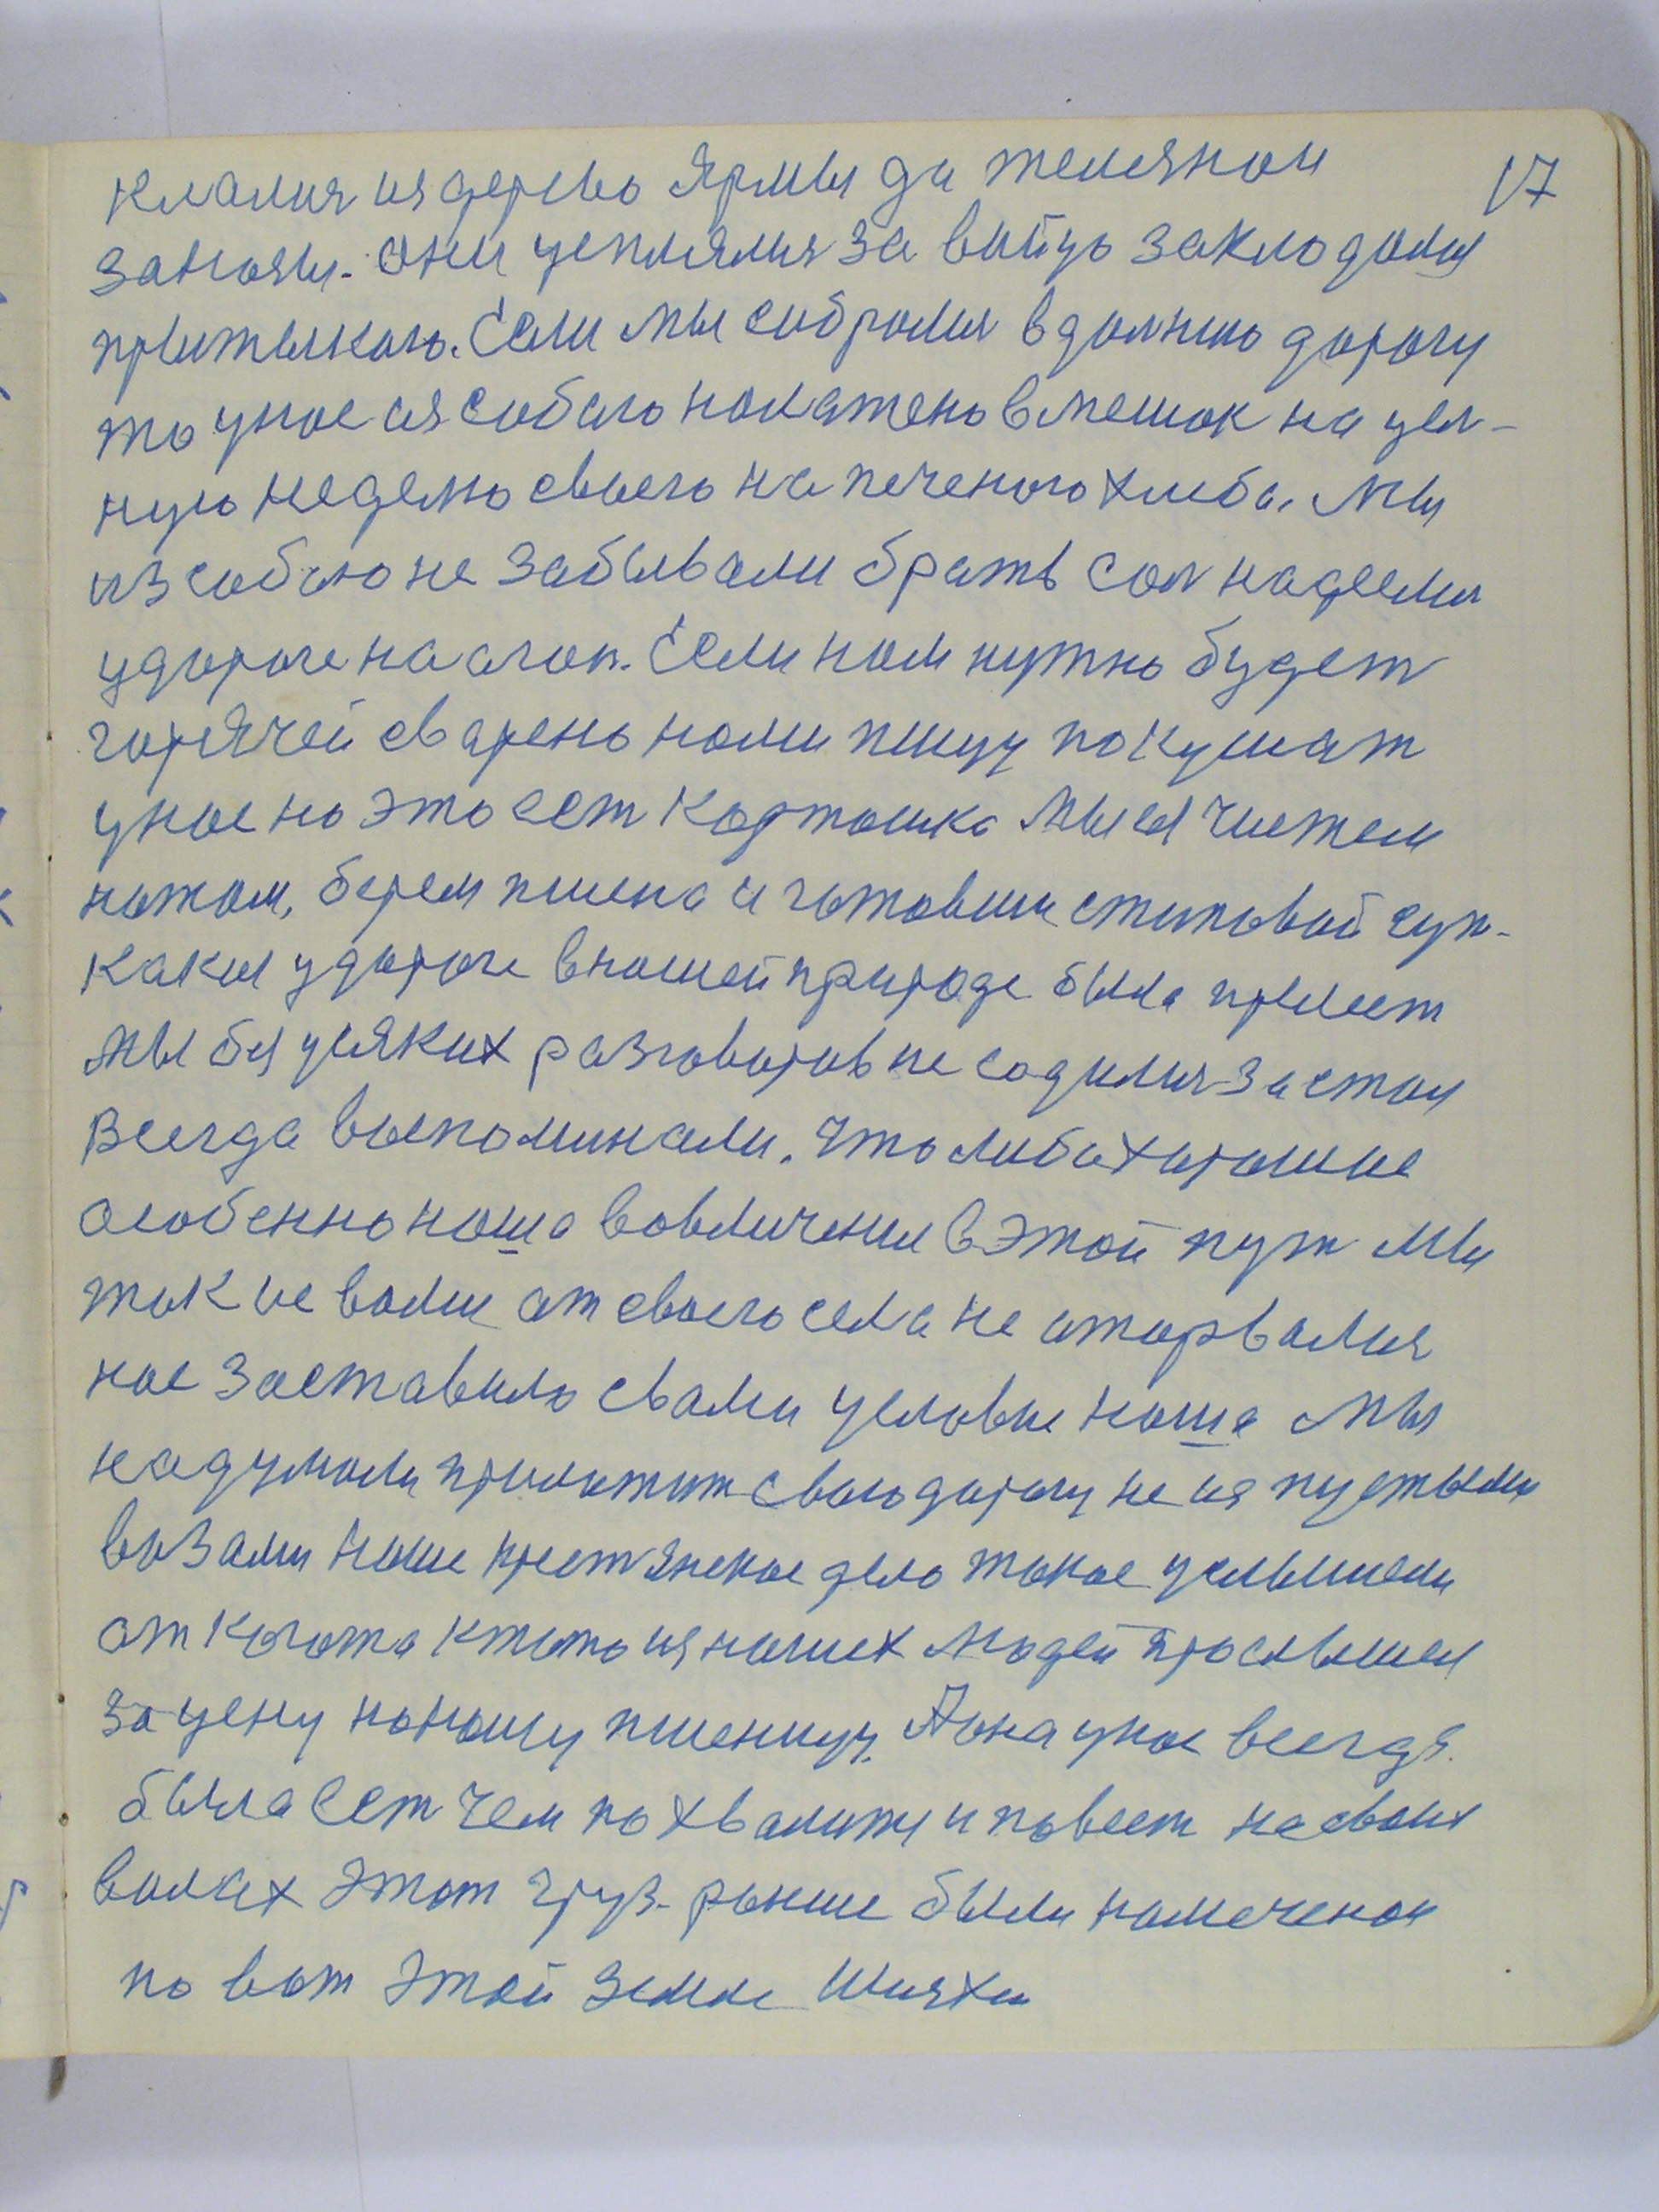 клалия из дерево Ярмы да желензнои 17
занозы. они цеплялия за вийцо заклодолия
притыкого. Если мы собролия в дольнию дорогу
то унос из собого положено в мешок на цел-
ную неделю своего на печеного хлеба. Мы
из собою не забывали брать сол надеелия
у дороге на огон. Если ном нужно будет
горячей сварено номи пищу покушат
унос но это ест Картошка мы ея чистем
ножом, берем пшена и готовим степовой суп.
Какая у дороге в ношей природе была прелест
мы без усяких разговоров не содилия за стол
всегда выспоминали. что либо хорошое
особенно ноша вовличения в этой пут мы
ток не воли от своего села не оторволия
нос заставило свами условие ноша мы
надумоли приложит свою дорогу не из пустыми
возами ноше крестянское дело токое услышели
от когото ктото из ноших людей прослышел
за цену на ношу пшеницу. А она унос всегдя
была ест чем похвалитця и повест на своих
волах этот груз. раньше были намеченои
по вот этой земле Шляхи